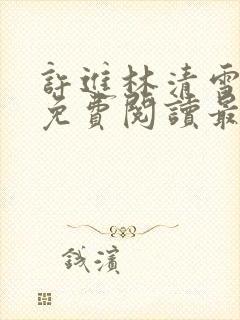 許進林清雪
免費閱讀最
錢濱